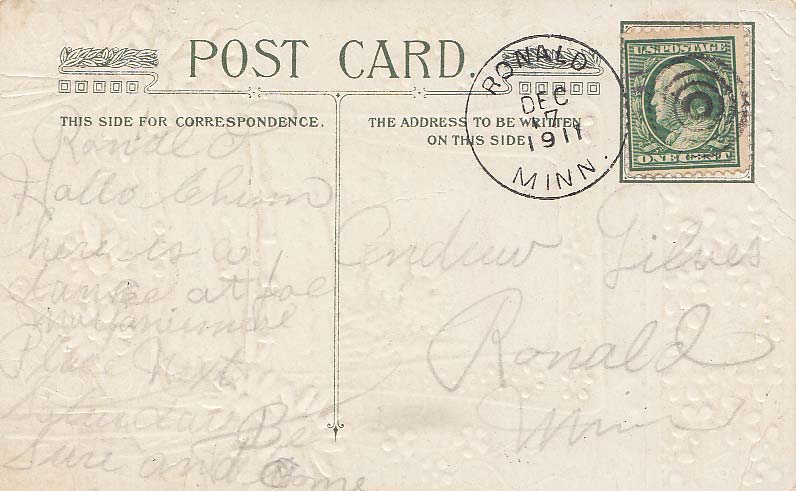 POST CARD.
RONALD
DEC
17
1911
MINN.
U.S. POSTAGE
ONE CENT
THIS SIDE FOR CORRESPONDENCE.
THE ADDRESS TO BE WRITTEN
ON THIS SIDE
Ronald
Hallo Chum
here is a
dance at Joe
Place Next
Be
Sure and Come
Andrew
Ronald
Minn